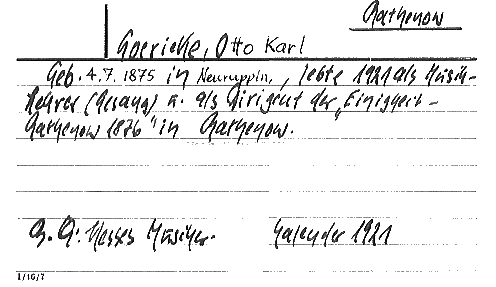 Rathenow
Goericke, Otto Karl
Geb. 4.7.1875 in Neuruppin, lebte 1921 als Musik-
lehrer (Gesang) u. als Dirigent der „Einigkeit-
Rathenow 1876" in Rathenow.
B. Q: Hesses Musiker- Kalender 1921
1/16/7